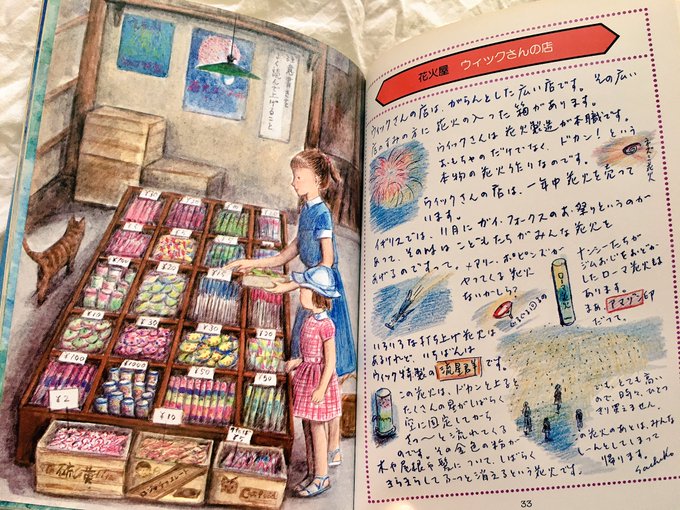 注意書きを
よく読んで上げること
¥20
¥30
¥100
¥1000
¥50
¥50
¥2
¥10
硫黄
花火屋 ウィックさんの店
ウィックさんの店は、がらんとした広い店です。その広い
店のすみの方に花火の入った箱があります。
ウィックさんは花火製造が本職です。
おもちゃのだけでなく、ドカン！という
本物の花火作りなのです。
ねずみ花火
ウィックさんの店は、一年中花火を売って
います。
イギリスでは、11月にガイ・フォークスのお祭りというのが
あって、その時は こどもたちが みんな花火を
あげるのですって
メアリー・ポピンズが
やってくる花火
ないかしら？
ナンシーたちが
ジムおじをおどか
したローマ花火も
あります。
まあ、アマゾン印
だって。
いろいろな打ち上げ花火は
あるけれど、いちばんは
ウィック特製の 流星群 です。
この花火は、ドカンと上ると
たくさんの星がしばらく
空に固定してから
すーっと流れてくる
のです。その金色の粉が
木や屋根や髪について、しばらく
きらきらしてふっと消えるという花火です。
でも、とても高い
ので、時々、ひとつ
きり買えません。
の花火のあとは、みんな
しーんとしてしまって
帰ります。
Sachiko
33